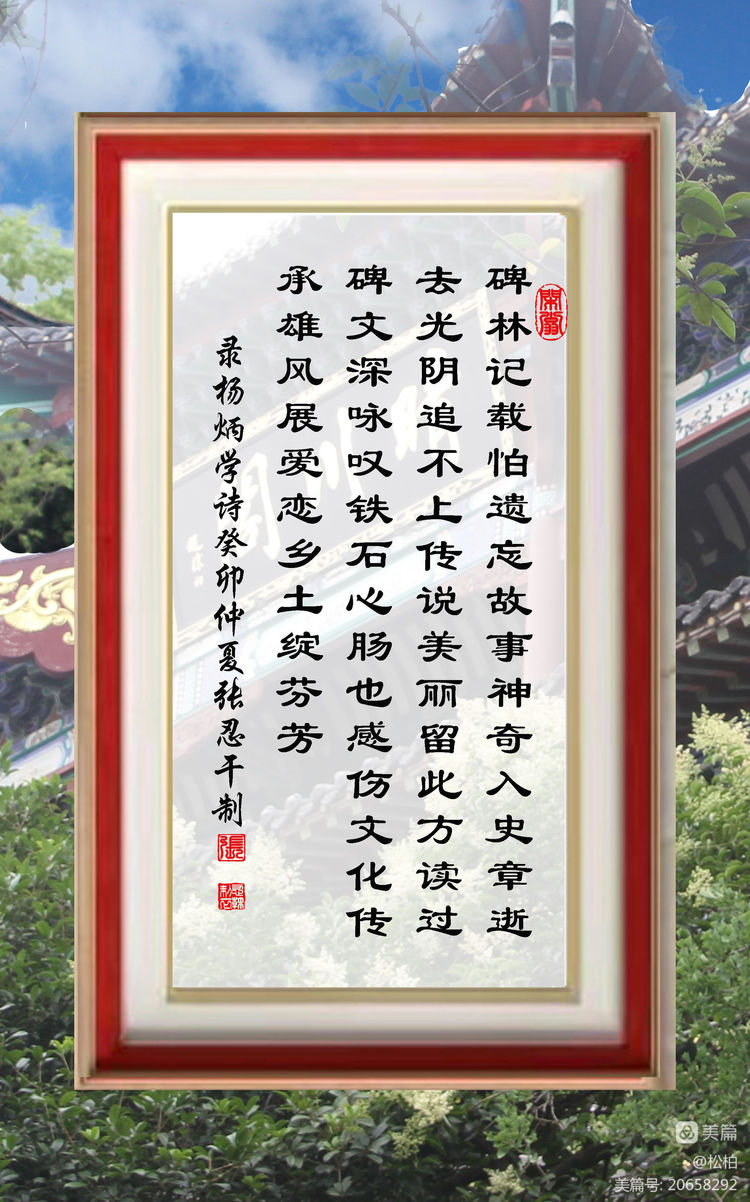 碑林记载怕遗忘故事神奇入史章逝
去光阴追不上传说美丽留此方读过
碑文深咏叹铁石心肠也感伤文化传
承雄风展爱恋乡土绽芬芳
录杨炳学诗癸卯仲夏张忍干制
張
美篇
@松柏
美篇号: 20658292